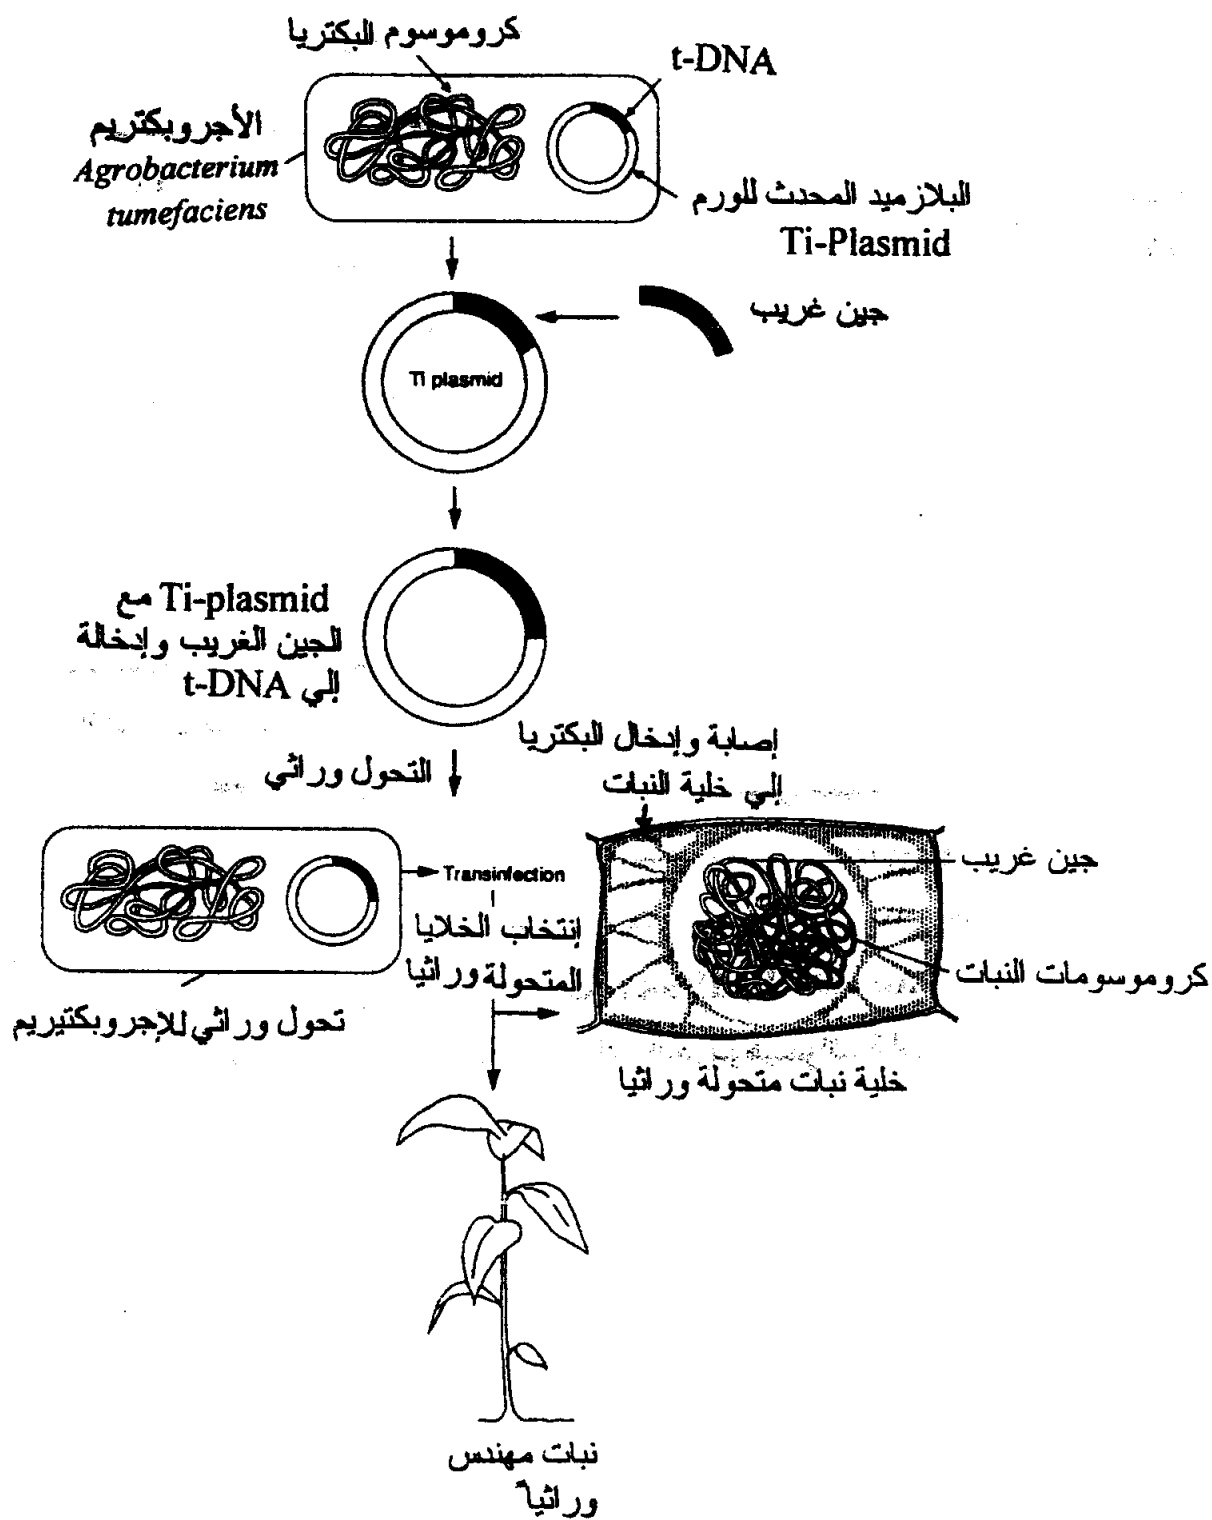 كروموسوم البكتريا
t-DNA
الأجروبكتريم
Agrobacterium
tumefaciens
البلازميد المحدث للورم
Ti-Plasmid
جين غريب
Ti plasmid
Ti-plasmid مع
الجين الغريب وإدخالة
إلي t-DNA
إصابة وإدخال البكتريا
إلي خلية النبات
التحول وراثي
Transinfection
جين غريب
إنتخاب الخلايا
المتحولة وراثيا
كروموسومات النبات
تحول وراثي للإجروبكتيريم
خلية نبات متحولة وراثيا
نبات مهندس
وراثياً